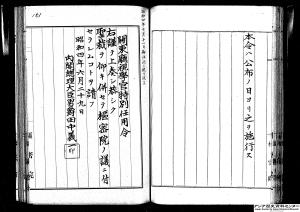 本令ハ公布ノ日ヨリ之ヲ施行ス
關東廳視學官特別任用令
右謹テ上奏シ恭シク
聖裁ヲ仰キ併セテ樞密院ノ議ニ付
セラレムコトヲ請フ
昭和四年六月二十九日
内閣總理大臣男爵田中義一